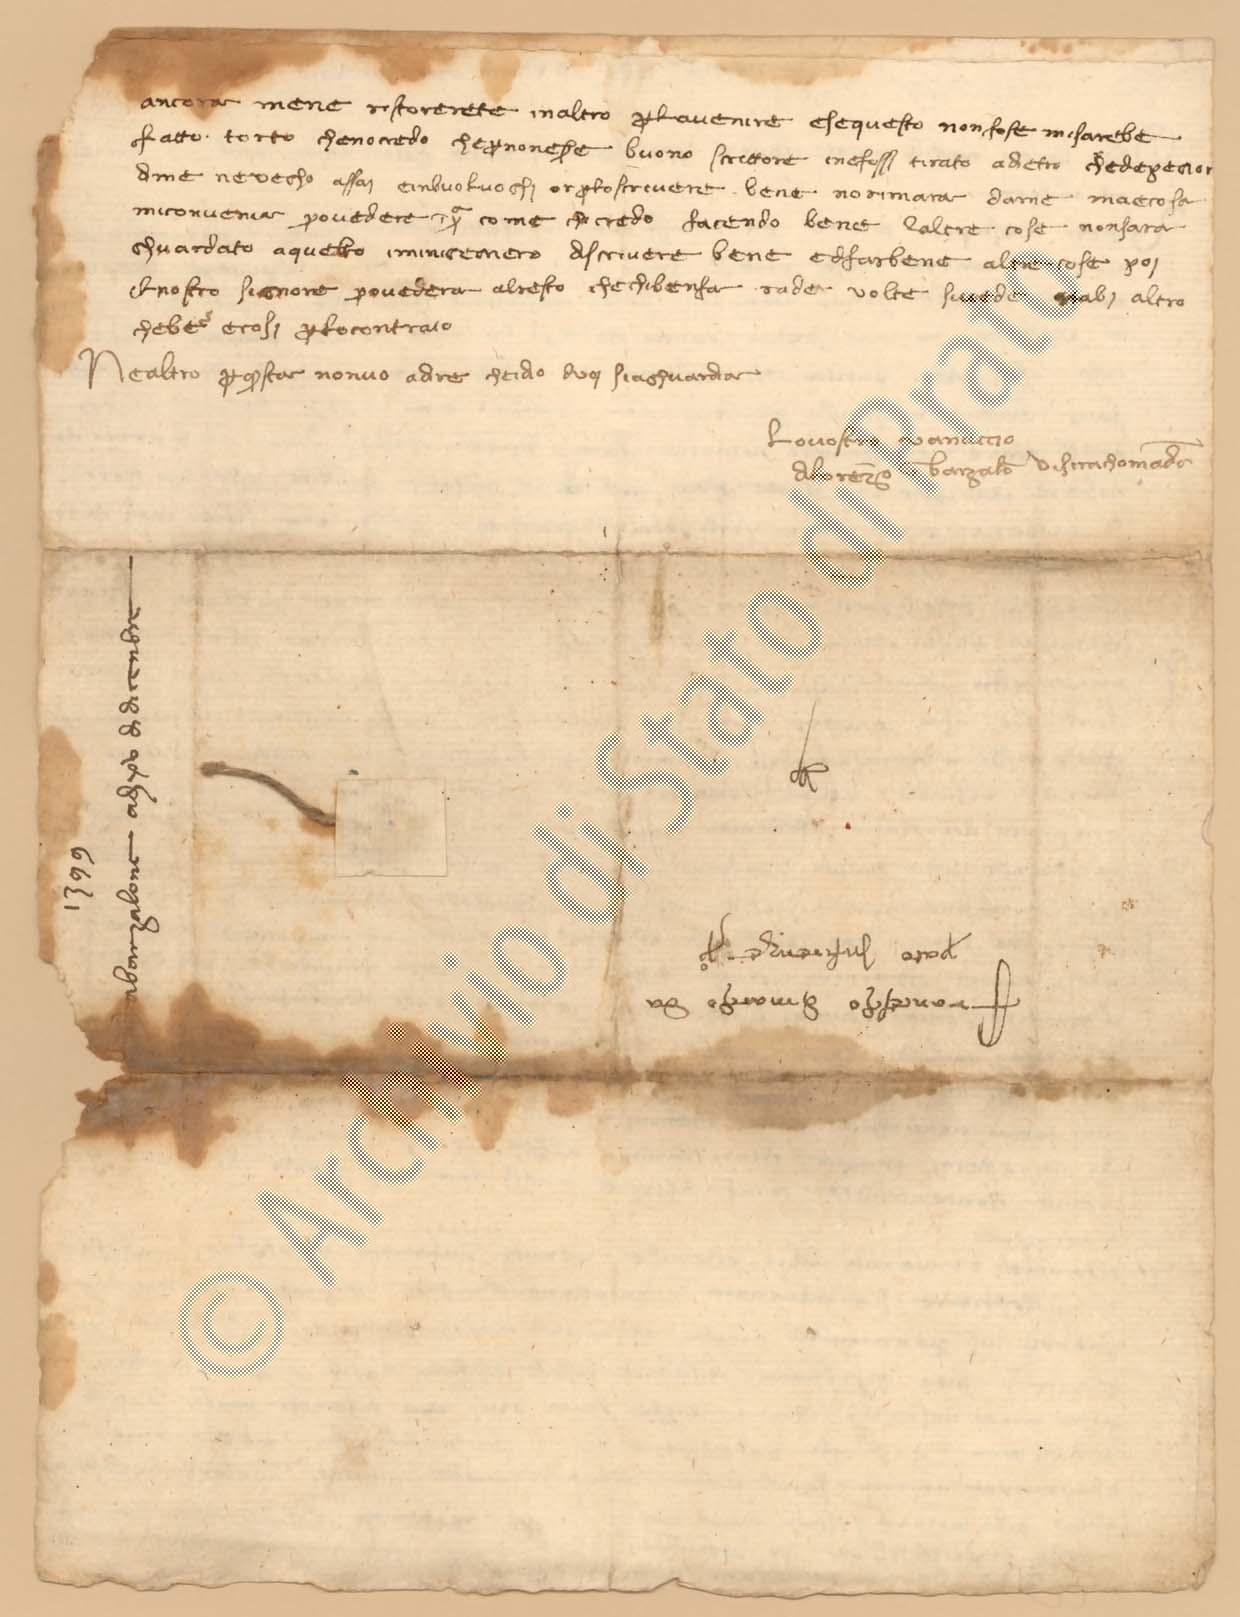 ancora mene ristorerete inaltro p lavenire esequesto nonfose misarebbe
fatto torto chenocredo che p nonesere buono scrittore inefossi tirato adietro chedepegior
dime nevegho assai einluoluoghi or p loscrivere bene norimara dame maecosa
miconvenia provedere come chicredo facendo bene laltre cose nonsara
ghuardato aquello iminicemero discrivere bene edifarbene altre cose poi
ilnostro signore provedera alresto chechibenfa rade volte sivede nabi altro
chebe ecosi p locontraio
Nealtro p questa nonvo adire cheidio voi siaghuardia
Lovostro Vanuccio
dilorenzo barzalo visirachomada
1399
dabarzalona adi di dicenbre
Francescho dimarcho da
prato inFirenze
© Archivio di Stato di Prato